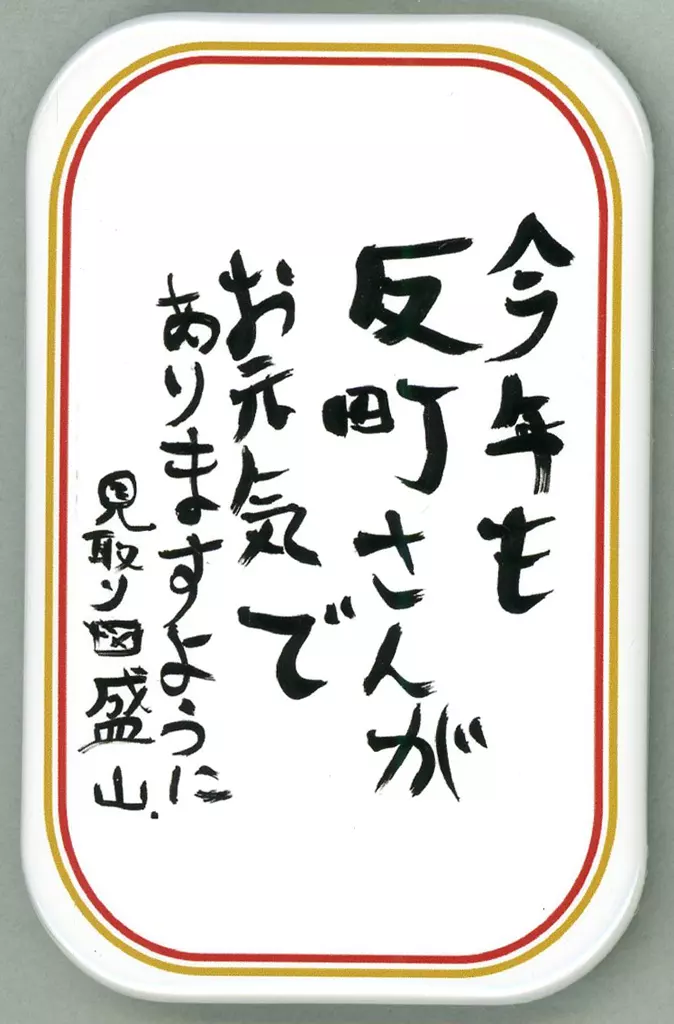 今年も
反町さんが
お元気で
ありますように
見取り図盛山.